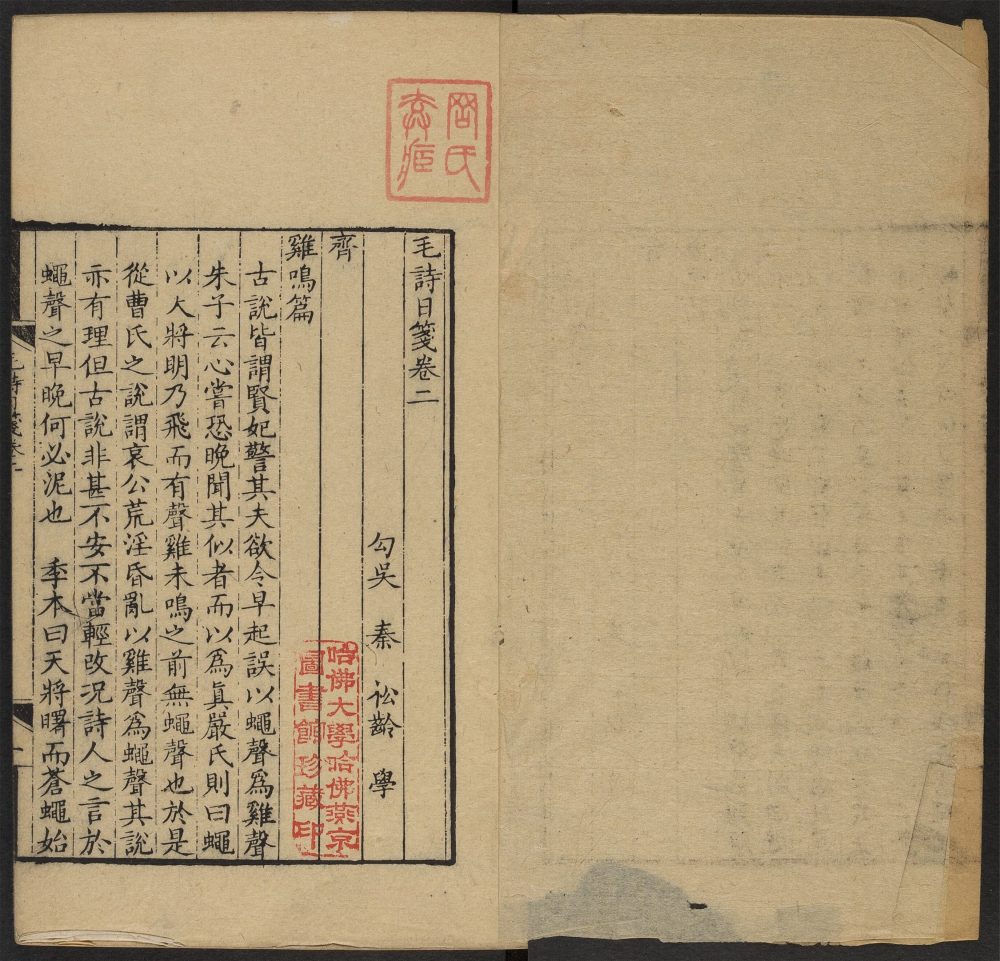 毛詩日箋卷二
勾吳 秦 松齡 學
齊
雞鳴篇
古說皆謂賢妃警其夫欲令早起誤以蠅聲爲雞聲
朱子云心嘗恐晚聞其似者而以爲眞嚴氏則曰蠅
以天將明乃飛而有聲雞未鳴之前無蠅聲也於是
從曹氏之說謂哀公荒淫昏亂以雞聲爲蠅聲其說
亦有理但古說非甚不安不當輕改况詩人之言於
蠅聲之早晚何必泥也 季本曰天將曙而蒼蠅始
毛詩日箋卷二
一
哈佛大學哈佛燕京
圖書館珍藏印